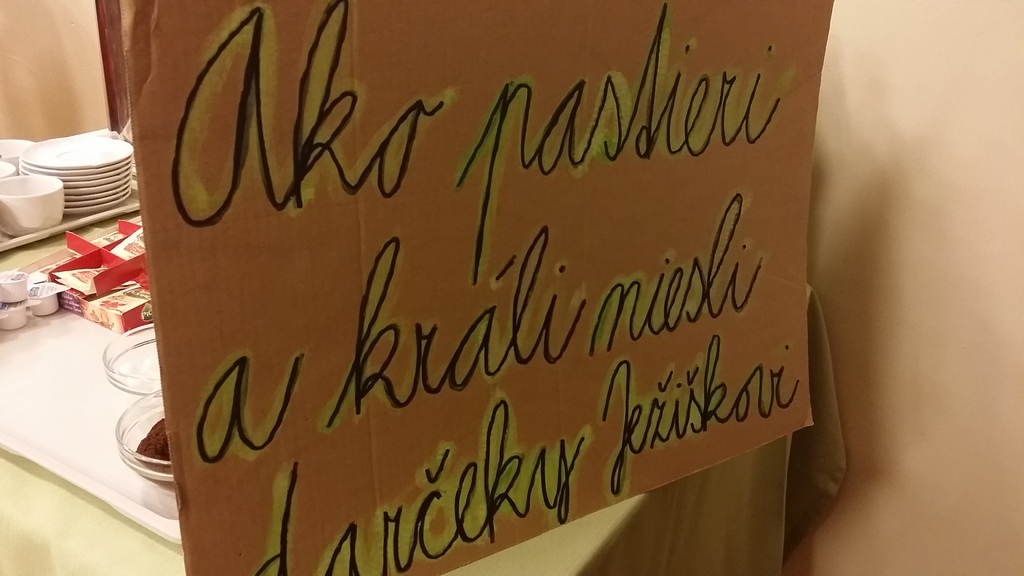 Ako pastieri
a králi niesli
darčeky Ježiškovi